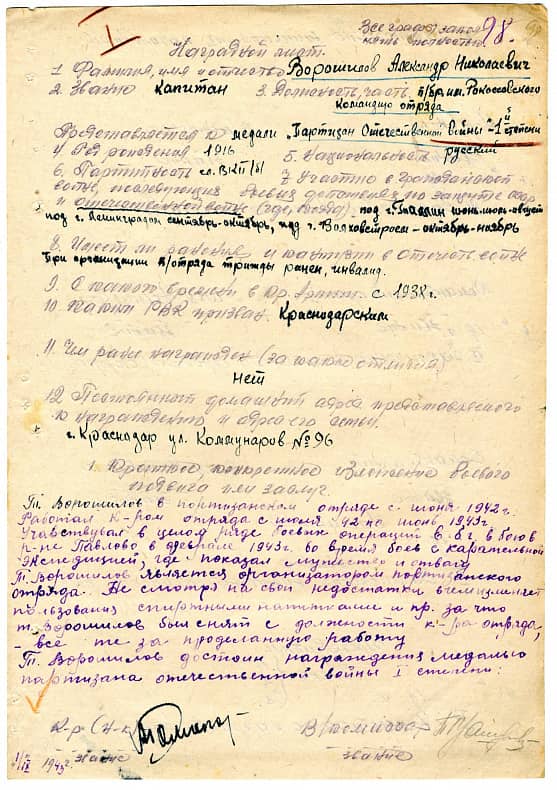 Все графы запол
нять полностью
98.
Наградной лист.
1. Фамилия, имя и отчество Ворошилов Александр Николаевич
2. Звание капитан 3. Должность, часть п/бр. им. Рокоссовского
командир отряда
Представляется к медали „Партизан Отечественной войны" - 1й степени
4. Год рождения 1916 5. Национальность русский
6. Партийность чл. ВКП/б/ 7. Участие в гражданской
войне, последующих боевых действиях по защите СССР
и отечественной войне (где, когда) под г. Таллин июнь-июль-август
под г. Ленинградом сентябрь-октябрь, под г. Волховстроем - октябрь-ноябрь
8. Имеет ли ранения и контузии в отечеств. войне
При организации п/отряда трижды ранен, инвалид.
9. С какого времени в Кр. Армии с 1938 г.
10. Каким РВК призван Краснодарским
11. Чем ранее награжден (за какие отличия)
нет
12. Постоянный домашний адрес представляемого
к награждению и адрес его семьи.
г. Краснодар ул. Коммунаров № 96
1. Краткое, конкретное изложение боевого
подвига или заслуг.
Т. Ворошилов в партизанском отряде с июня 1942 г.
Работал к-ром отряда с июля 42 по июнь 1943 г.
Участвувал в целом ряде боевых операций в
р-не Павлово в феврале 1943 г. во время боев с карательной
экспедицией, где показал мужество и отвагу
Т. Ворошилов является организатором портизанского
отряда. Не смотря на свои недостатки
пользования спиртными напитками и пр. за что
т. Ворошилов был снят с должности к-ра отряда,
- все же за проделанную работу
Т. Ворошилов достоин награждения медалью
партизана отечественной войны I степени:
К-р (Н-к В/комиссар
звание звание